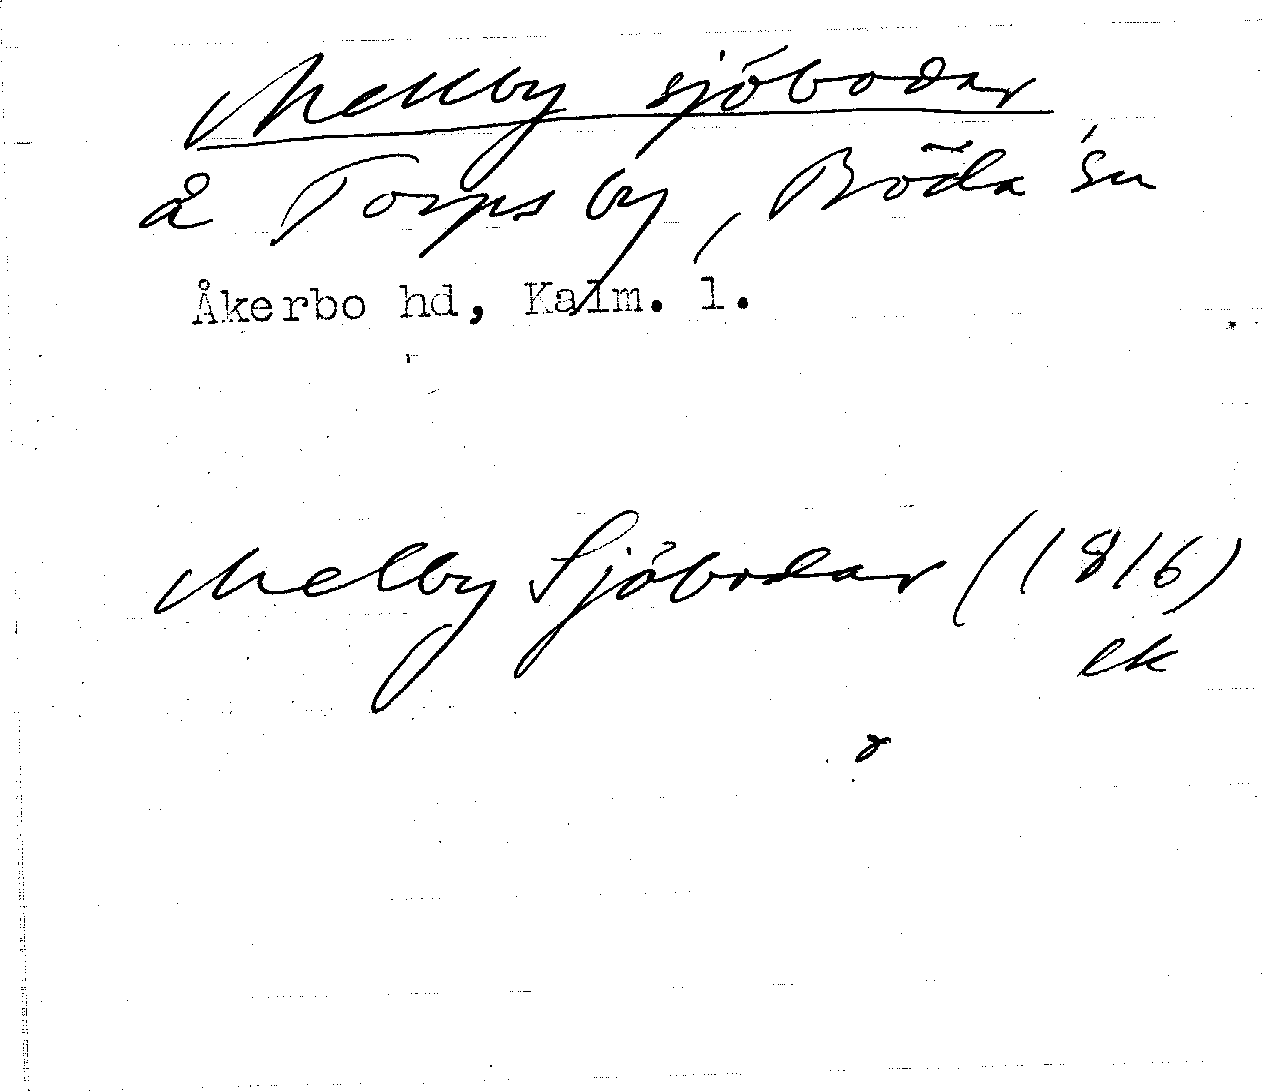 Mellby sjöbodar
å Torps by, Böda sn
Åkerbo hd, Kalm. l.
Melby Sjöbodar (1816)
ek